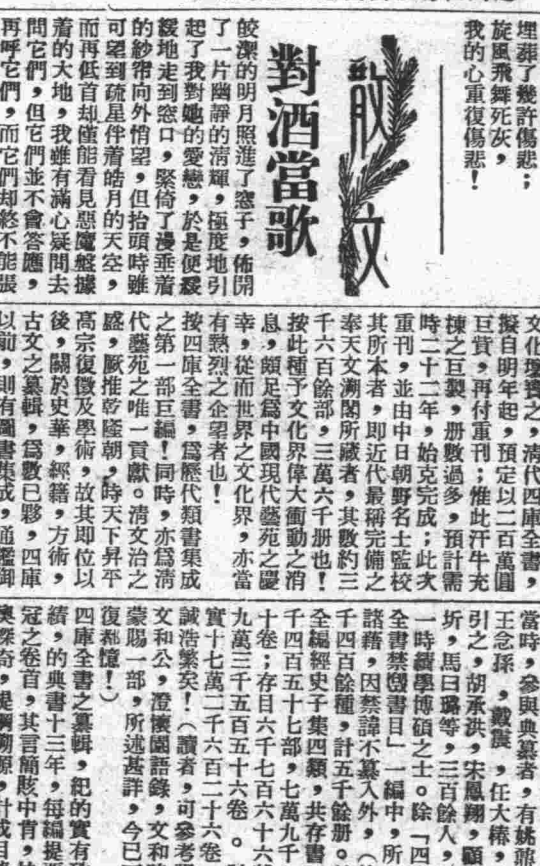 埋葬了幾許傷悲;
旋風飛舞死灰,
我的心重復傷悲!
散文
對酒當歌
皎潔的明月照進了窓子,佈開
了一片幽靜的清輝,極度地引
起了我對她的愛戀,於是便緩
緩地走到窓口,緊倚了漫垂着
的紗帘向外悄望,但抬頭時雖
可望到疏星伴着皓月的天空,
而再低首却僅能看見惡魔盤據
着的大地,我雖有滿心疑問去
問它們,但它們並不會答應,
再呼它們,而它們却終不能張
文化瓌寶之,清代四庫全書,
擬自明年起,預定以二百萬圓
巨貲,再付重刊;惟此汗牛充
棟之巨製,册數過多,預計需
時二十二年,始克完成;此次
重刊,並由中日朝野名士監校
其所本者,即近代最稱完備之
奉天文溯閣所藏者,其數約三
千六百餘部,三萬六千册也!
按此種予文化界偉大衝動之消
息,頗足爲中國現代藝苑之慶
幸,從而世界之文化界,亦當
有熱烈之企望者也!
按四庫全書,爲歷代類書集成
之第一部巨編!同時,亦爲清
代藝苑之唯一貢獻。清文治之
盛,厥推乾隆朝,時天下昇平
高宗復徵及學術,故其即位以
後,關於史華,經籍,方術,
古文之纂輯,爲數已夥,四庫
以前,則有圖書集成,通鑑御
當時,參與典纂者,有姚鼐
王念孫,戴震,任大椿,
引之,胡承洪,宋鳳翔,顧
圻,馬曰璐等,三百餘人,
一時績學博碩之士。除「四
全書禁燬書目」一編中,所
諸藉,因禁諱不纂入外,(
千四百餘種,計五千餘册。
全編經史子集四類,共存書
千四百五十七部,七萬九千
十卷;存目六千七百六十六
九萬三千五百五十六卷。
實十七萬二千六百二十六卷
誠浩繁矣!(讀者,可參考
文和公,澄懷園語錄,文和
蒙賜一部,所述甚詳,今已
復都憶!)
四庫全書之纂輯,紀的實有
績,的典書十三年,每編提
冠之卷首,其言簡賅中肯,